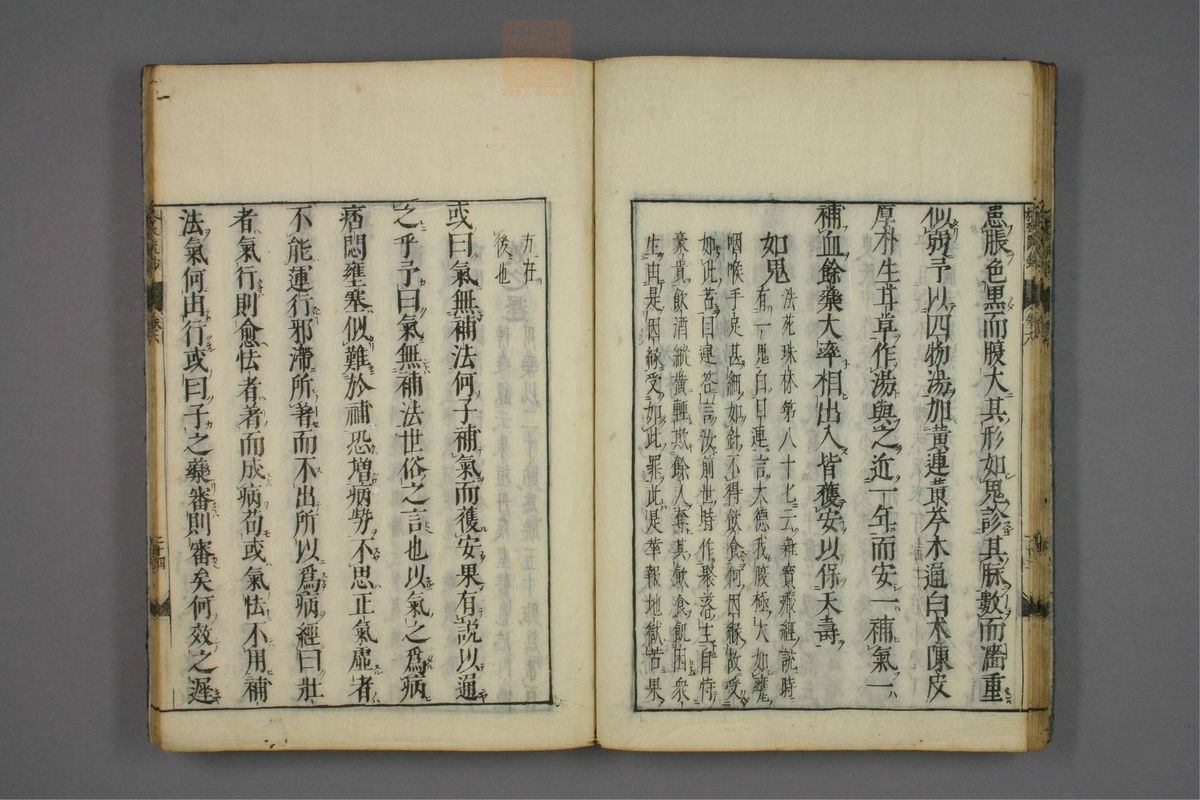 患脹色黒而腹大其形如鬼診其脉數而濇重
似弱予以四物湯加黄連黄芩木通白朮陳皮
厚朴生甘草作湯與之近一年而安一補氣一
補血餘藥大率相出入皆獲安以保天壽
如鬼
法苑珠林第八十七云雜寶藏經說時
有一鬼白目連言大德我腹極大如甕
咽喉手足甚細如針不得飲食何因縁故受
如此苦目連答言汝前世時作聚落主自恃
豪貴飲酒縱横輕欺餘人奪其飲食飢困衆
生由是因縁受如此罪此是華報地獄苦果
方在
後也
或曰氣無補法何子補氣而獲安果有說以通
之乎予曰氣無補法世俗之言也以氣之爲病
痞悶壅塞似難於補恐増病勢不思正氣虛者
不能運行邪滯所著而不出所以爲病經曰壯
者氣行則愈怯者著而成病苟或氣怯不用補
法氣何由行或曰子之藥審則審矣何效之遲
二十四